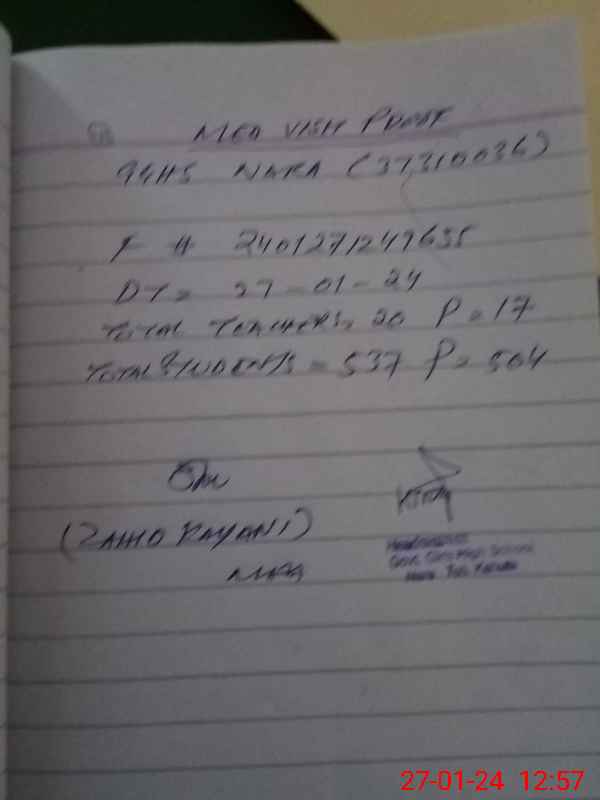 MEA VISIT PROOF
GGHS NARA (37310036)
F # 2401271249635
DT = 27-01-24
TOTAL TEACHERS = 20 P = 17
TOTAL STUDENTS = 537 P = 504
(ZAHID KAYANI)
MEA
Headmistress
Govt. Girls High School
Nara Teh. Kahuta
27-01-24 12:57